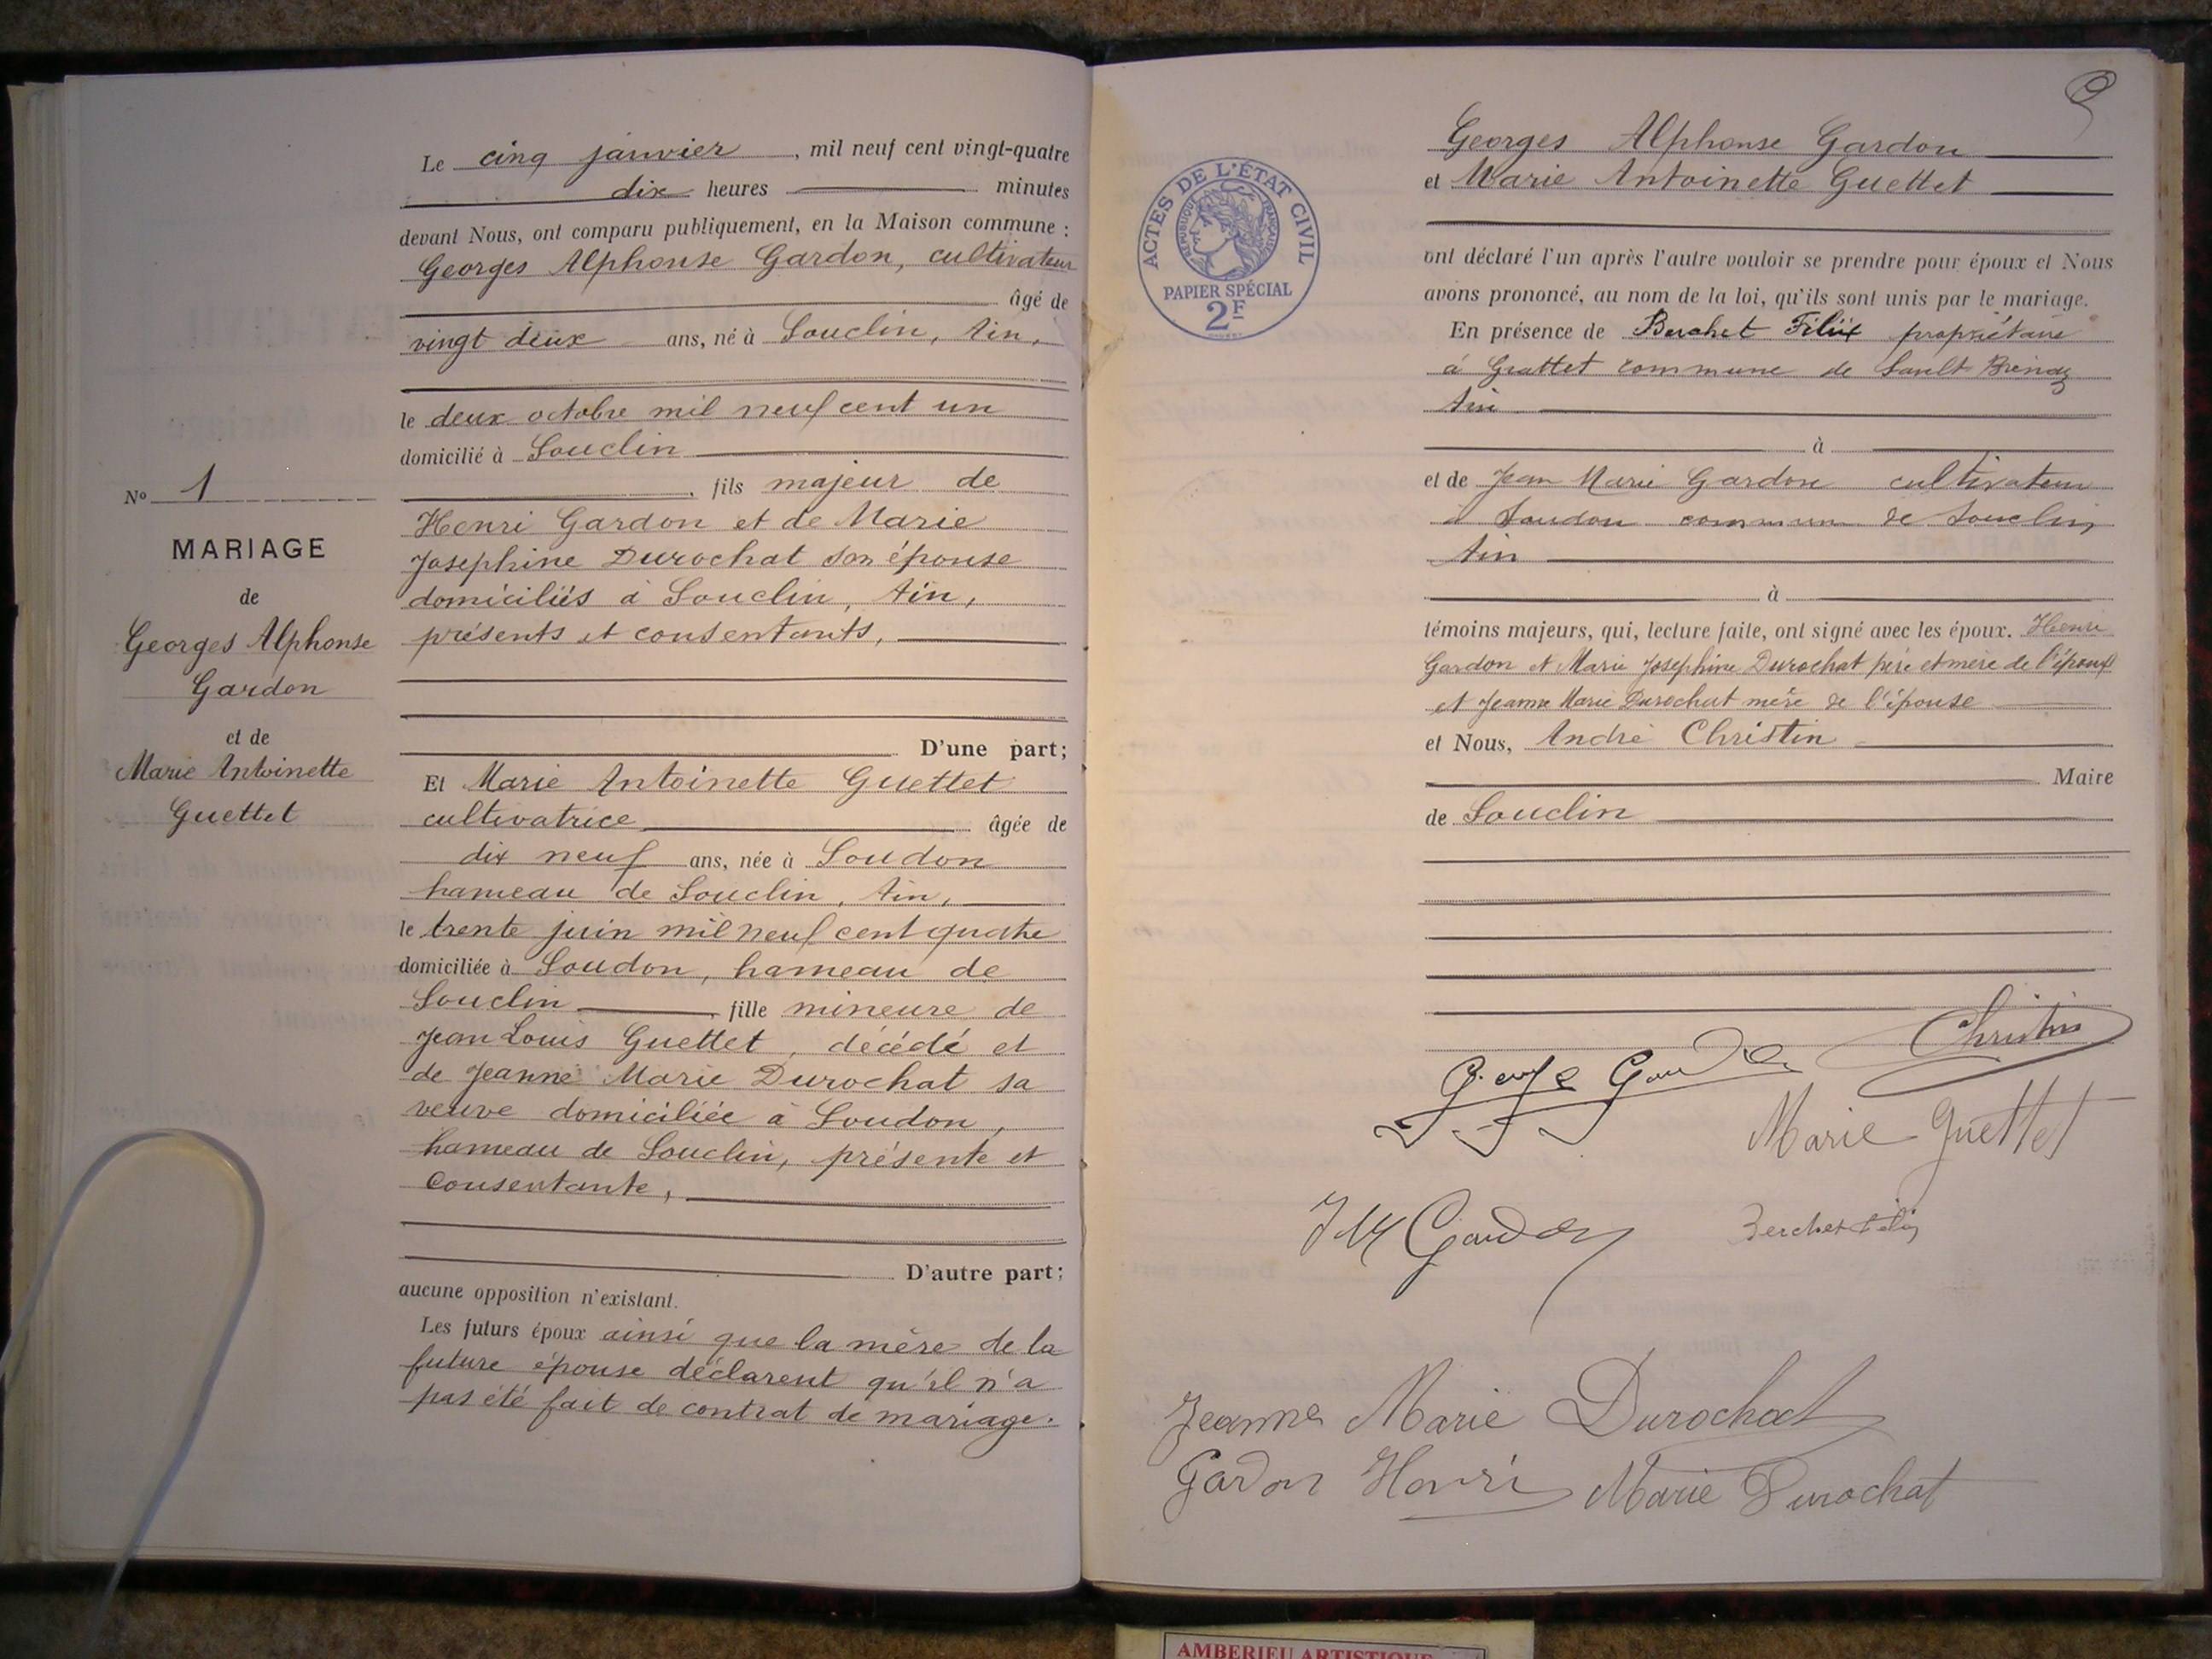 N° 1
MARIAGE
de
Georges Alphonse
Gardon
et de
Marie Antoinette
Guettet
Le cinq janvier, mil neuf cent vingt-quatre
dix heures minutes
devant Nous, ont comparu publiquement, en la Maison commune :
Georges Alphonse Gardon, cultivateur
âgé de
vingt deux ans, né à Souclin, Ain,
le deux octobre mil neuf cent un
domicilié à Souclin
, fils majeur de
Henri Gardon et de Marie
Josephine Durochat son épouse
domiciliés à Souclin, Ain,
présents et consentants,
D'une part;
Et Marie Antoinette Guettet
cultivatrice âgée de
dix neuf ans, née à Soudon
hameau de Souclin, Ain,
le trente juin mil neuf cent quatre
domiciliée à Soudon, hameau de
Souclin, fille mineure de
Jean Louis Guettet, décédé et
de Jeanne Marie Durochat sa
veuve domiciliée à Soudon,
hameau de Souclin, présente et
consentante,
D'autre part;
aucune opposition n'existant.
Les futurs époux ainsi que la mère de la
future épouse déclarent qu'il n'a
pas été fait de contrat de mariage.
ACTES DE L'ÉTAT CIVIL
RÉPUBLIQUE FRANÇAISE
PAPIER SPÉCIAL
2F
Georges Alphonse Gardon
et Marie Antoinette Guettet
ont déclaré l'un après l'autre vouloir se prendre pour époux et Nous
avons prononcé, au nom de la loi, qu'ils sont unis par le mariage.
En présence de Berchet Félix propriétaire
à Grattet commune de Sault Brénaz
Ain
à
et de Jean Marie Gardon cultivateur
à Soudon commune de Souclin,
Ain
à
témoins majeurs, qui, lecture faite, ont signé avec les époux. Henri
Gardon et Marie Josephine Durochat père et mère de l'époux
et Jeanne Marie Durochat mère de l'épouse
et Nous, André Christin
Maire
de Souclin
Christin
Georges Gardon
Marie Guettet
JM Gardon
Berchet Félix
Jeanne Marie Durochat
Gardon Henri Marie Durochat
AMBERIEU ARTISTIQUE